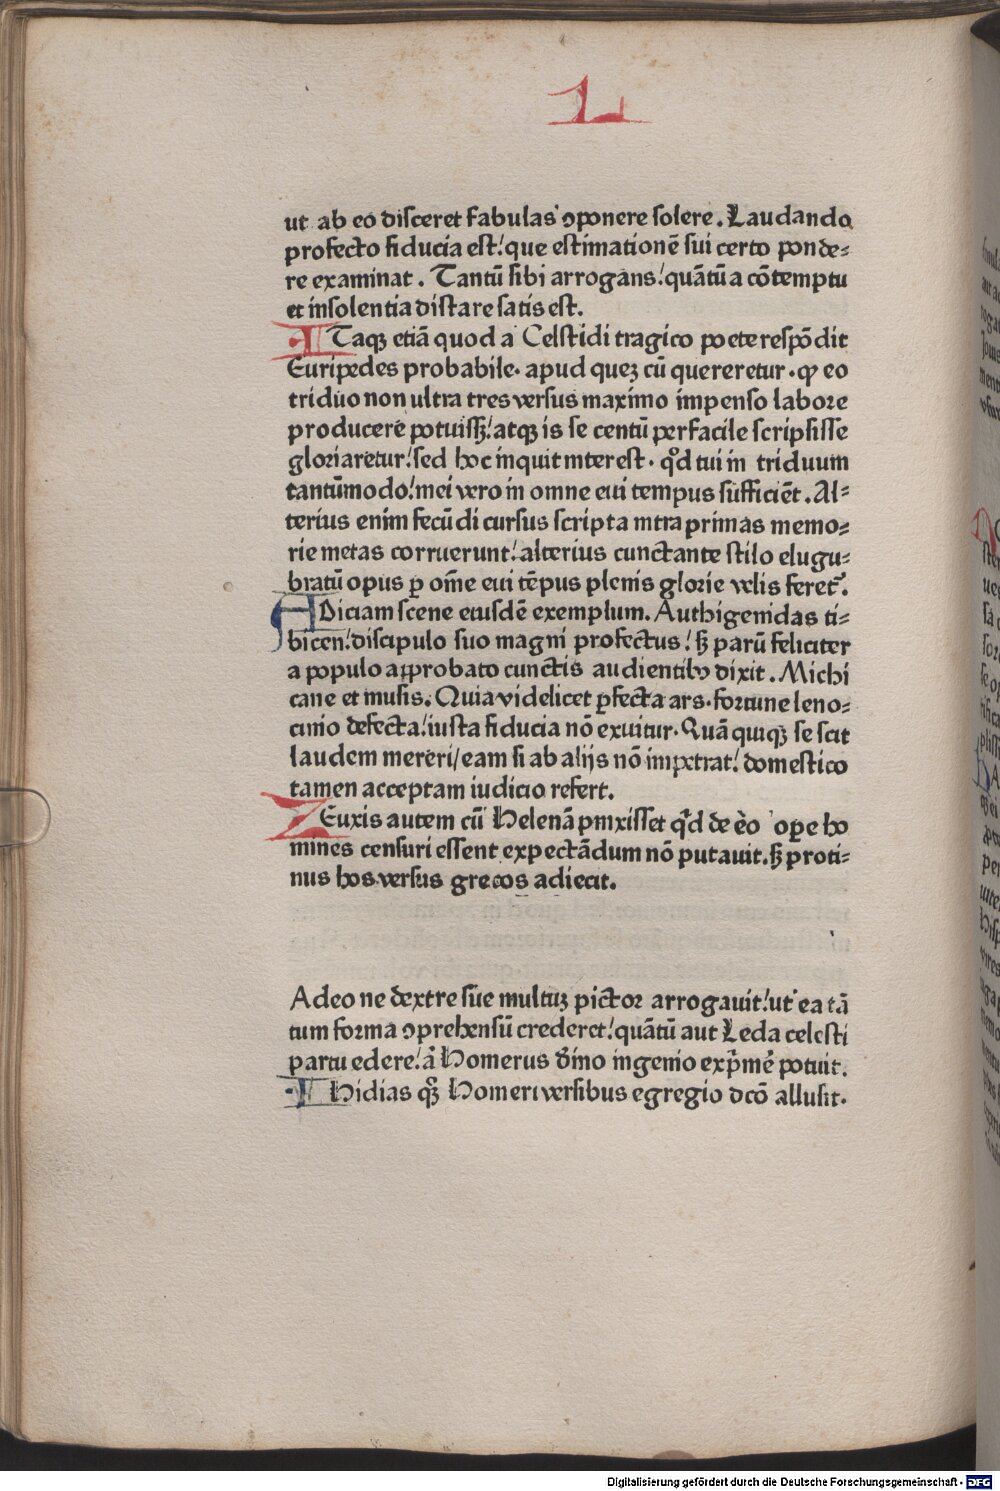 L
ut ab eo disceret fabulas ꝯponere solere. Laudanda
profecto fiducia est: que estimationē sui certo ponde⸗
re examinat. Tantū sibi arrogans: quātū a cōtemptu
et insolentia distare satis est.
ITaqꝫ etiā quod a Celstidi tragico poete respōdit
Euripedes probabile. apud queꝫ cū quereretur. ꝙ eo
triduo non ultra tres versus maximo impenso labore
producere potuissꝫ: atqꝫ is se centū perfacile scripsisse
gloriaretur: sed hoc inquit interest. qd̓ tui in triduum
tantūmodo: mei vero in omne eui tempus sufficiēt. Al⸗
terius enim fecūdi cursus scripta intra primas memo⸗
rie metas corruerunt: alterius cunctante stilo elugu⸗
bratū opus ꝑ om̄e eui tēpus plenis glorie velis feret᷑.
ADiciam scene eiusdē exemplum. Anthigenidas ti⸗
bicen: discipulo suo magni profectus: sꝫ parū feliciter
a populo approbato cunctis audientibꝰ dixit. Michi
cane et musis. Quia videlicet ꝑfecta ars. fortune leno⸗
cinio defecta: iusta fiducia nō exuitur. Quā quiqꝫ se scit
laudem mereri/ eam si ab alijs nō impetrat: domestico
tamen acceptam iudicio refert.
ZEuxis autem cū Helenā pinxisset qd̓ de eo oꝑe ho
mines censuri essent expectādum nō putauit. sꝫ proti⸗
nus hos versus grecos adiecit.
Adeo ne dextre sue multuꝫ pictor arrogauit: ut ea tā
tum forma ꝯprehensū crederet: quātū aut Leda celesti
partu edere: a̓ Homerus diūno ingenio exp̓mē potuit.
PHidias qꝫ Homeri versibus egregio dcō allusit.
Digitalisierung gefördert durch die Deutsche Forschungsgemeinschaft - DFG